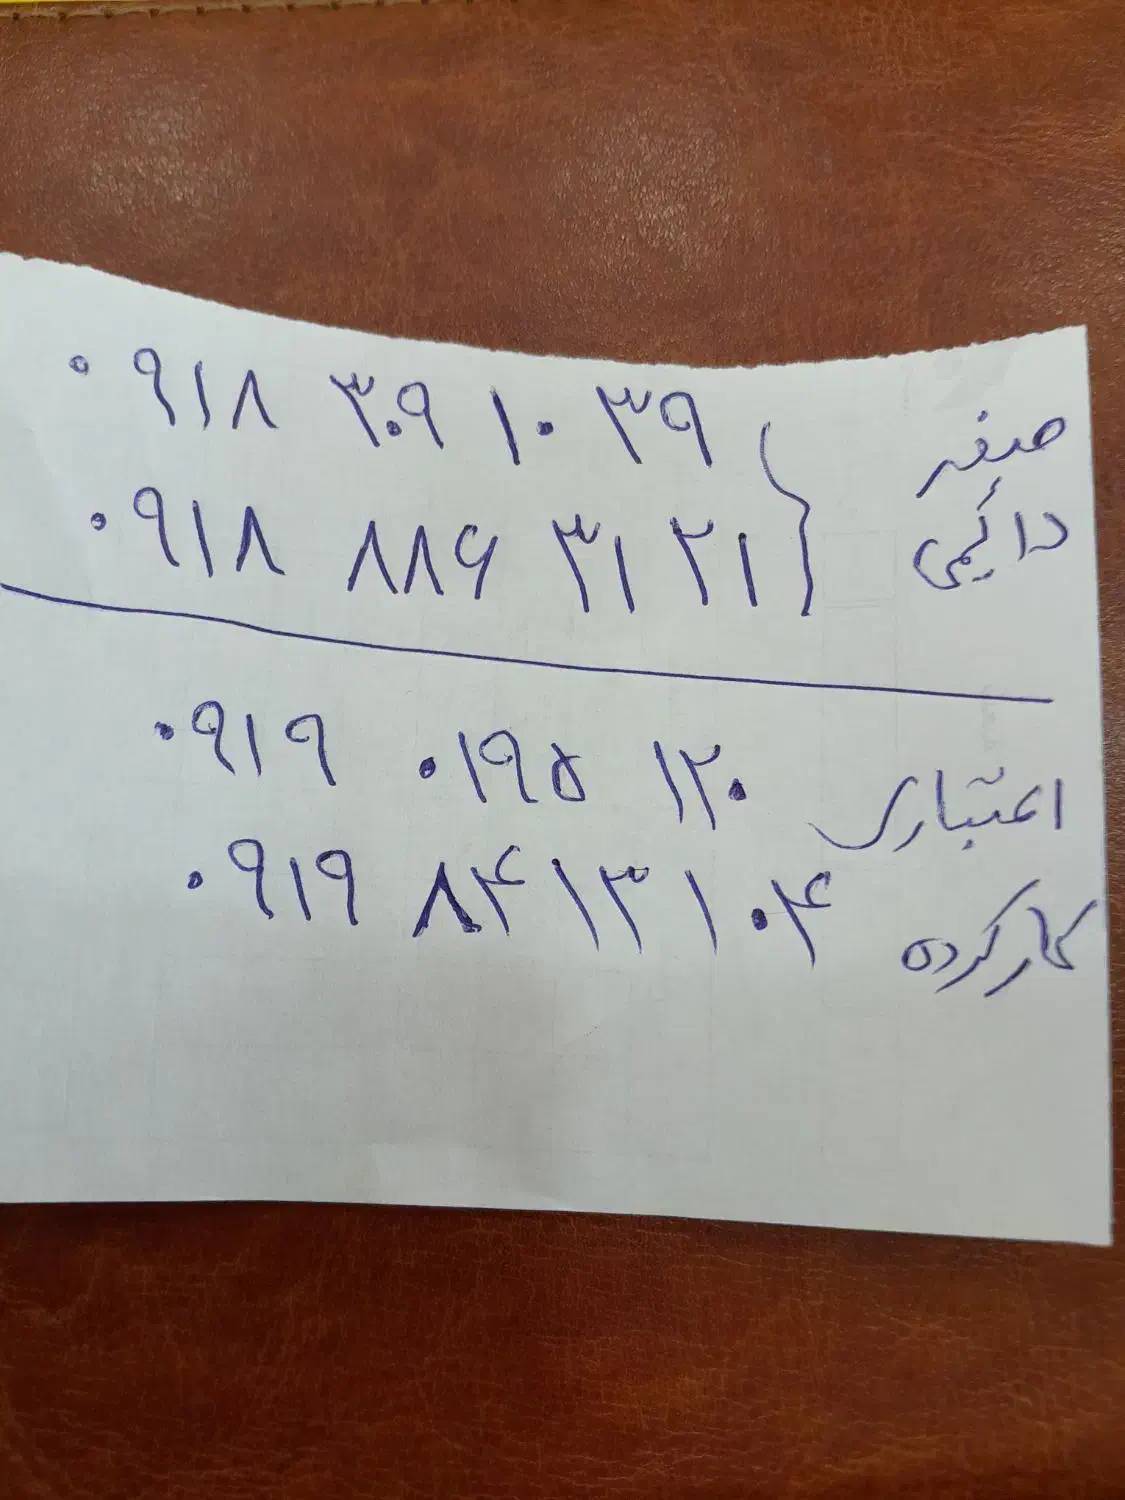 ۰۹۱۸ ۳۰۹ ۱۰ ۳۹ صفر
۰۹۱۸ ۸۸۶ ۳۱ ۲۱ دائیمی
۰۹۱۹ ۰۱۹۵ ۱۲۰ اعتباری
۰۹۱۹ ۸۴ ۱۳ ۱۰۴ کارکرده